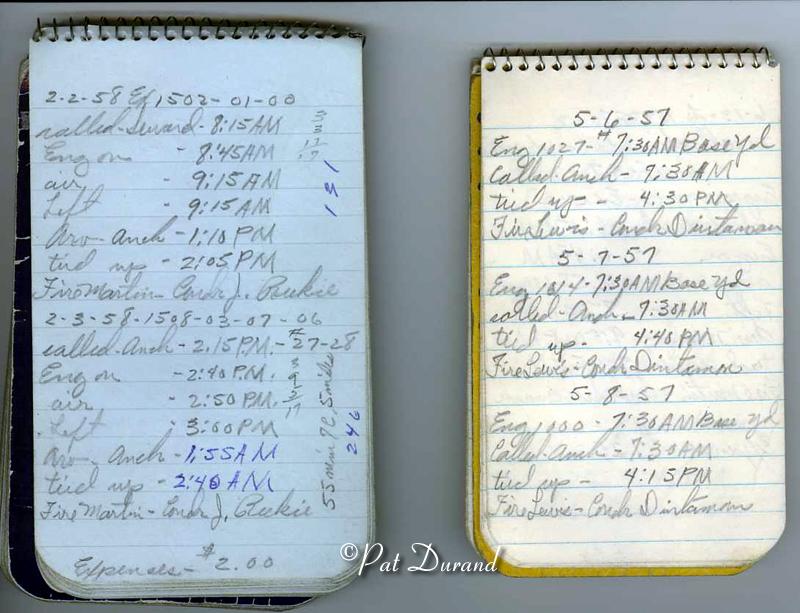 2-2-58 Ex 1502-01-00
called-seward-8:15AM
Eng on - 8:45AM
air - 9:15AM
Left - 9:15AM
Arv-Anch-1:10PM
tied up - 2:05PM
Fire Martin-Condr J. Rickie
2-3-58-1508-03-07-06
called-Anch-2:15PM.-#27-28
Eng on -2:40PM.
air -2:50PM.
Left - 3:00PM
Arv. Anch-1:55AM
tied up-2:40AM
Fire Martin-Condr J. Rickie
Expenses-$2.00
131
55 min 5 miles
246
5-6-57
Eng 1027-#7:30AM Base Yd
Called-Anch-7:30AM
tied up - 4:30PM
Fire Lewis-Condr Dintaman
5-7-57
Eng 1014-7:30AM Base Yd
called-Anch-7:30AM
tied up- 4:40PM
Fire Lewis-Condr Dintaman
5-8-57
Eng 1000-7:30AM Base Yd
Called-Anch-7:30AM
tied up - 4:15PM
Fire Lewis-Condr Dintaman
©Pat Durand